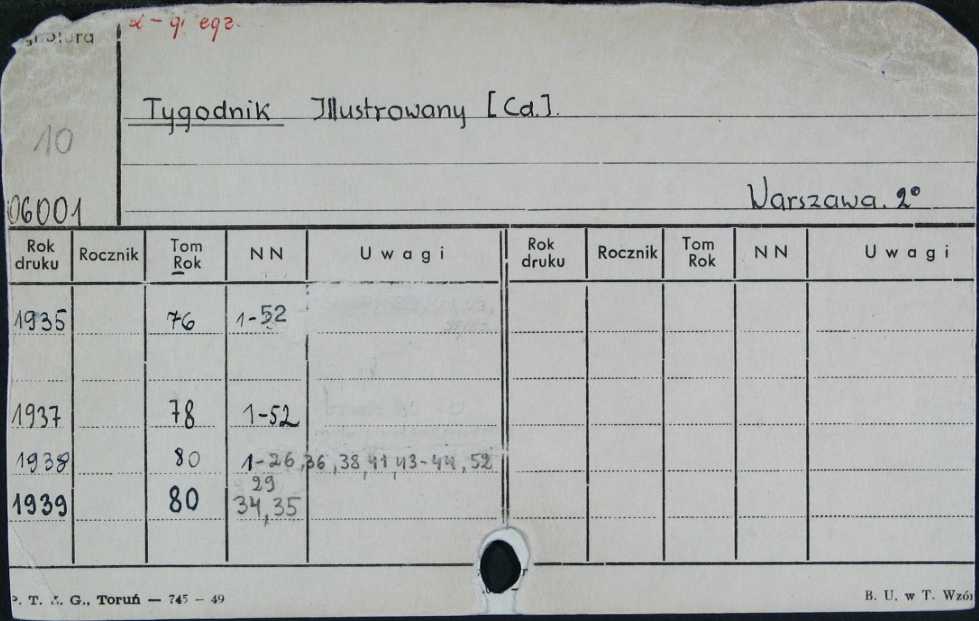 α - gi egz.
gnatura
Tygodnik Illustrowany [Cd.].
10
Warszawa. 2°
06001
Rok druku Rocznik Tom Rok N N U w a g i Rok druku Rocznik Tom Rok N N U w a g i
1935 76 1-52
1937 78 1-52
1938 80 1-26,36,38,41,43-44,52
29
1939 80 34,35
P. T. Z. G., Toruń — 745 - 49 B. U. w T. Wzór